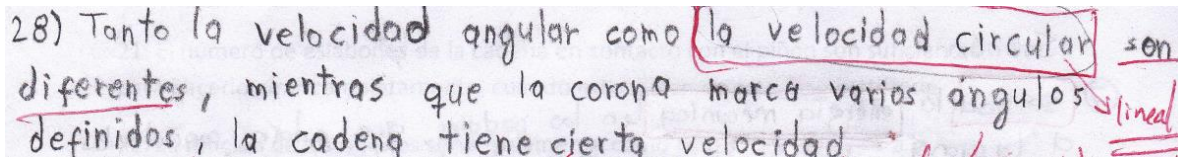 28) Tanto la velocidad angular como la velocidad circular son
diferentes, mientras que la corona marca varios ángulos lineal
definidos, la cadena tiene cierta velocidad.